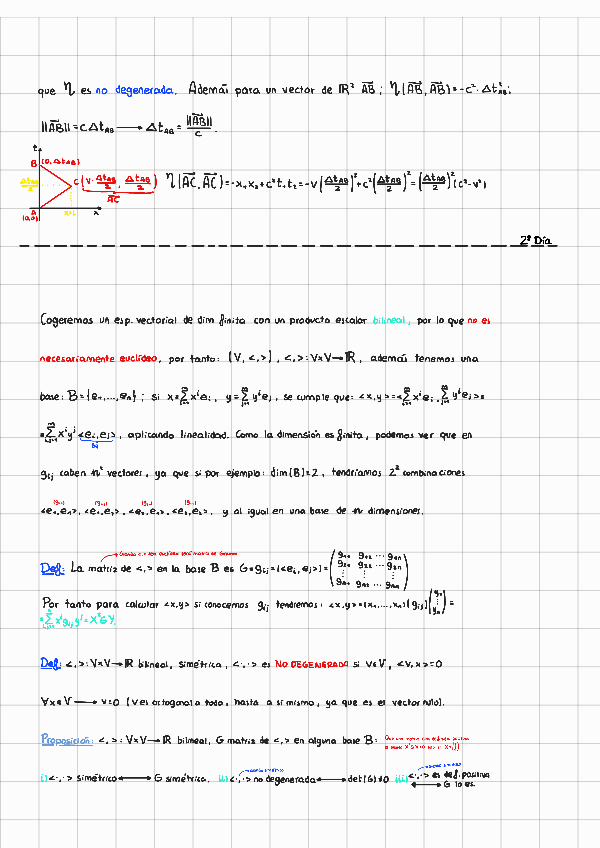 que η es no degenerada. Además para un vector de ℝ² AB⃗; η(AB⃗, AB⃗)=-c²·Δt²AB;
||AB⃗||=cΔtAB ⟶ ΔtAB = ||AB⃗||/c.
t
B (0, ΔtAB)
ΔtAB/2 C (v·ΔtAB/2, ΔtAB/2) η(AC⃗, AC⃗)=-x₁x₂+c²t₁t₂=-v(ΔtAB/2)²+c²(ΔtAB/2)²=(ΔtAB/2)²(c²-v²)
AC⃗
A x
(0,0)
2º Día
Cogeremos un esp. vectorial de dim finita con un producto escalar bilineal, por lo que no es
necesariamente euclídeo, por tanto: (V, <,>), <,>: V×V⟶ℝ, además tenemos una
base: B={e₁,...,eₙ}; si x=∑xⁱeᵢ, y=∑yʲeⱼ, se cumple que: <x,y>=<∑xⁱeᵢ, ∑yʲeⱼ>=
=∑xⁱyʲ<eᵢ,eⱼ>, aplicando linealidad. Como la dimensión es finita, podemos ver que en
gᵢⱼ caben n² vectores, ya que si por ejemplo: dim(B)=2, tendríamos 2² combinaciones
<e₁,e₁>, <e₁,e₂>, <e₂,e₁>, <e₂,e₂>, y al igual en una base de n dimensiones.
Def: La matriz de <,> en la base B es G=gᵢⱼ=(<eᵢ,eⱼ>)=(g₁₁ g₁₂ ... g₁ₙ
g₂₁ g₂₂ ... g₂ₙ
gₙ₁ gₙ₂ ... gₙₙ)
Por tanto para calcular <x,y> si conocemos gᵢⱼ tendremos: <x,y>=(x₁,...,xₙ)(gᵢⱼ)(y₁ ⋮ yₙ)=
=∑xⁱgᵢⱼyʲ=XᵗGY.
Def: <,>: V×V⟶ℝ bilineal, simétrica, <·,·> es NO DEGENERADA si v∈V, <v,x>=0
∀x∈V ⟶ v=0 (v es ortogonal a todo, hasta a sí mismo, ya que es el vector nulo).
Proposición: <,>: V×V⟶ℝ bilineal, G matriz de <,> en alguna base B:
i) <·,·> simétrico ⟷ G simétrica. ii) <·,·> no degenerada ⟷ det(G)≠0 iii) <·,·> es def. positiva
⟷ G lo es.